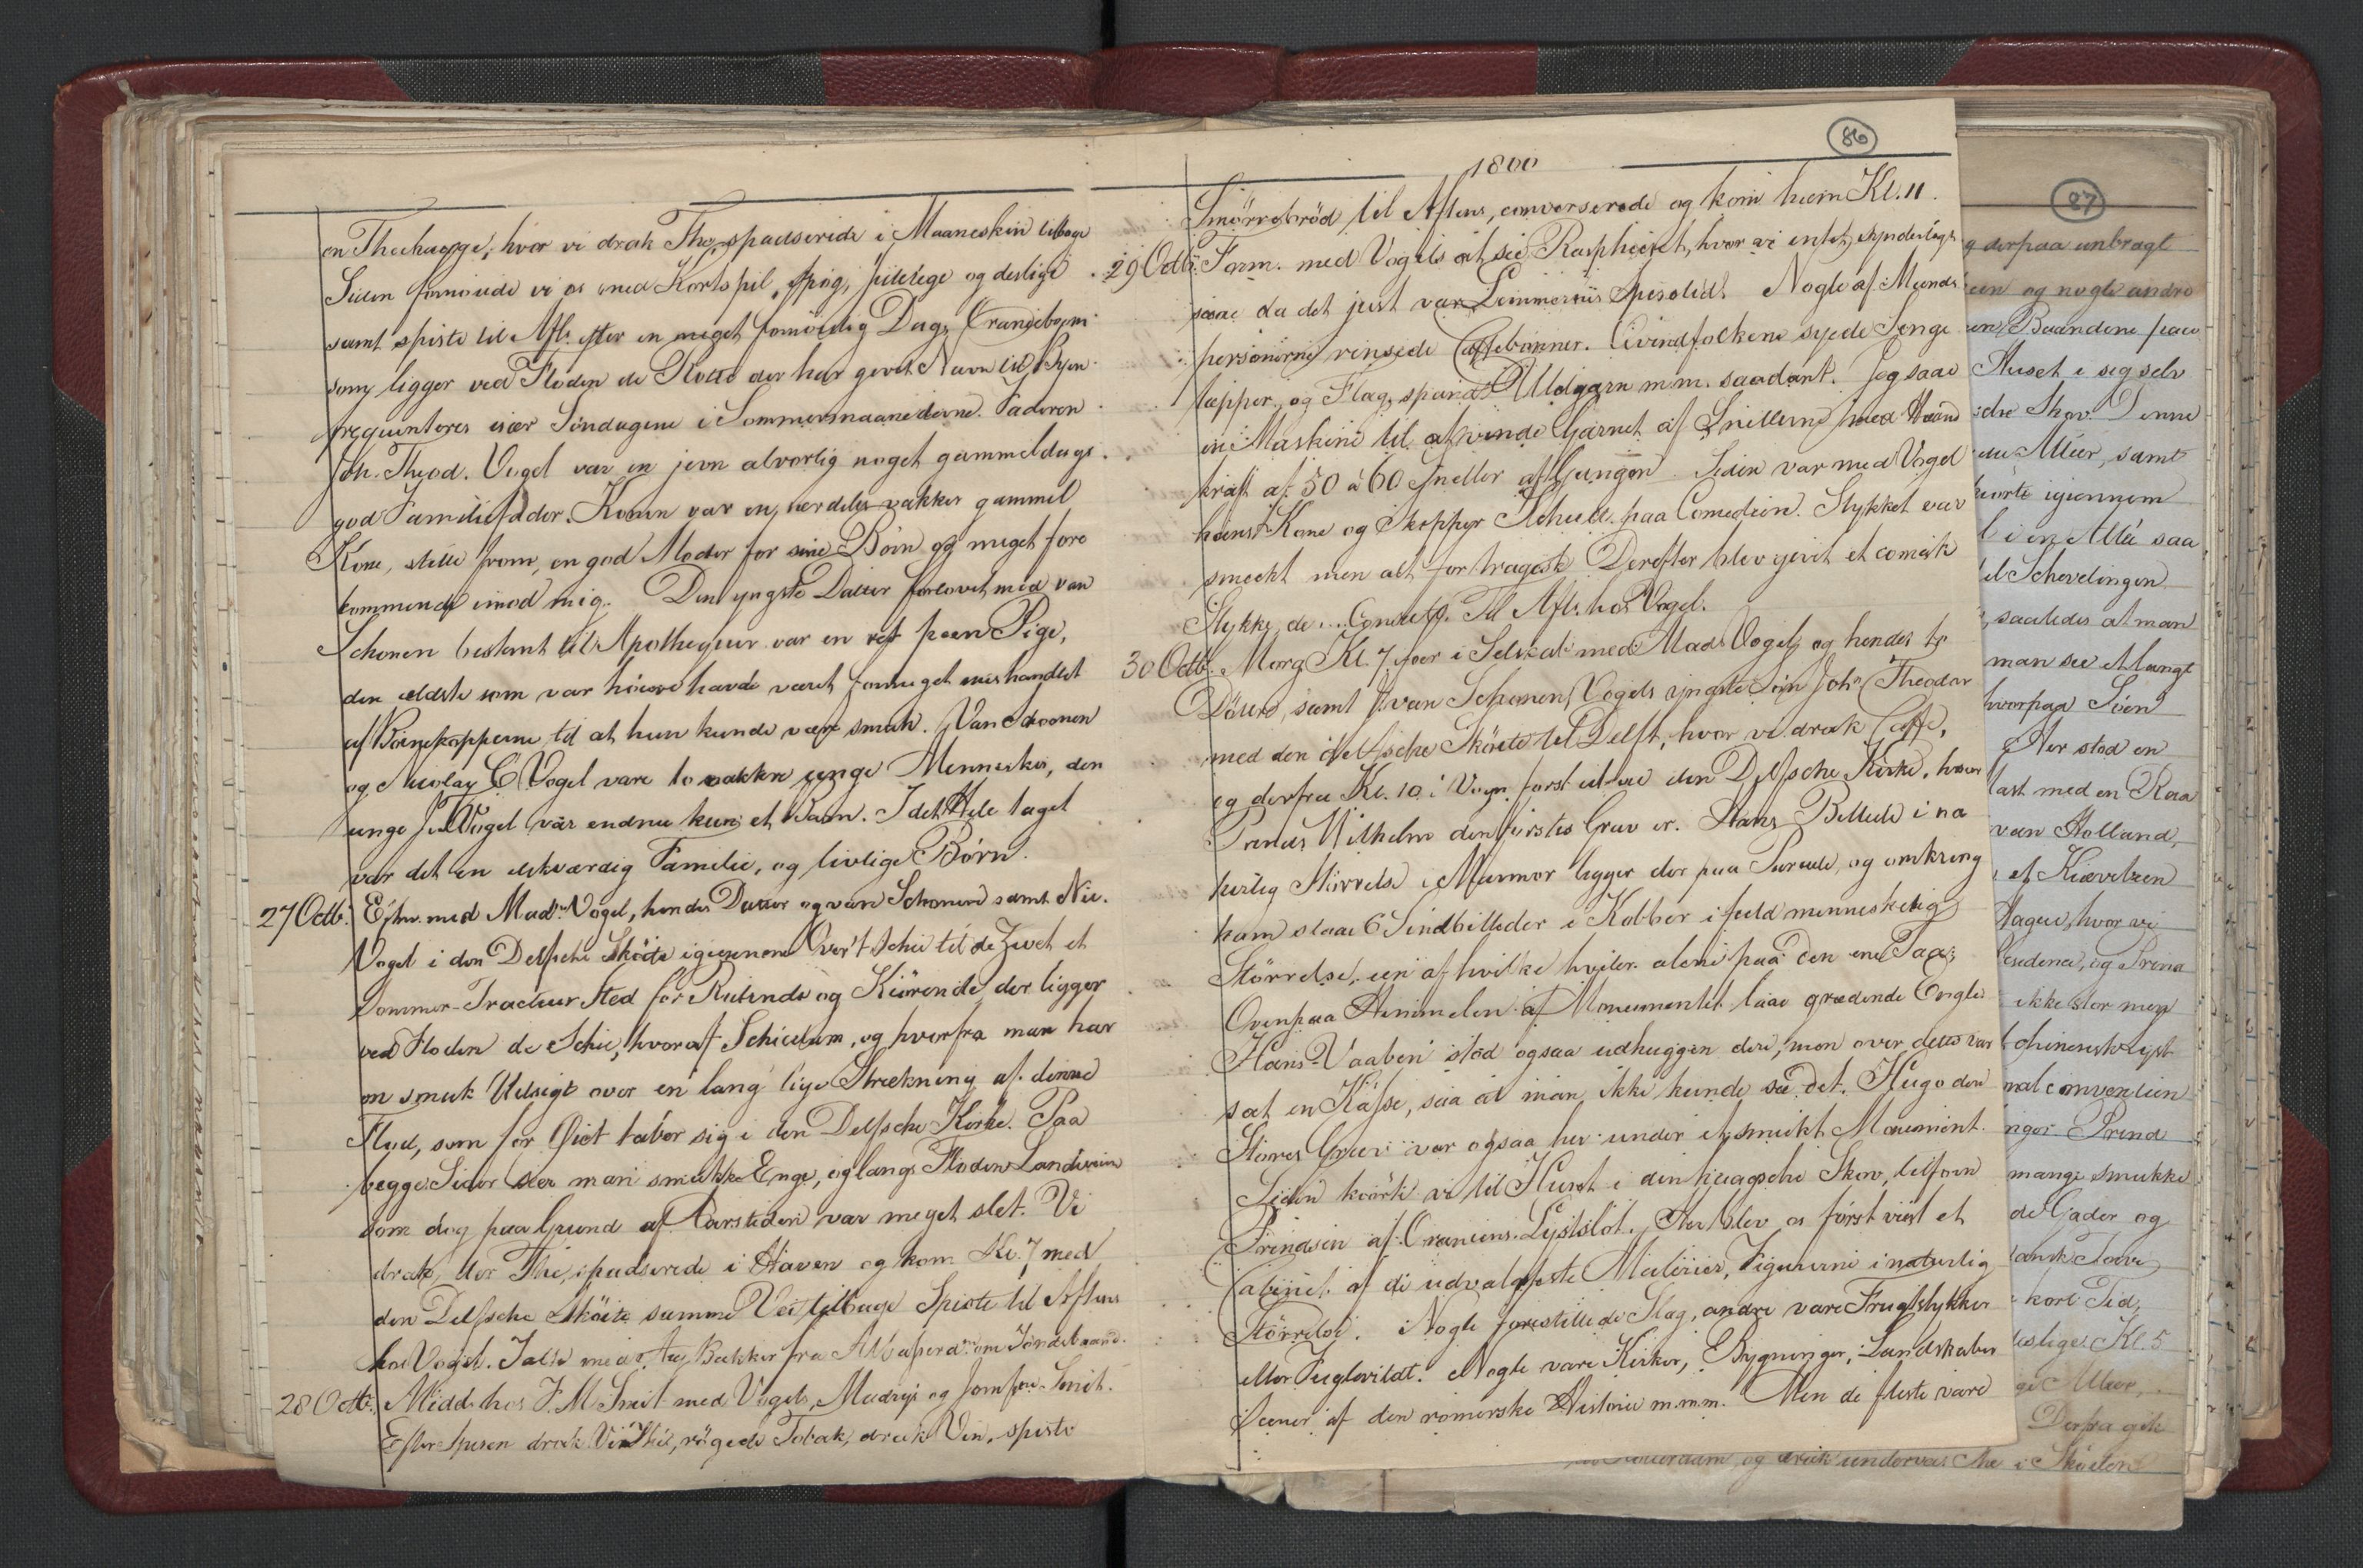 en Theehauge, hvor vi drak The, spadserede i Maaneskin tilbage
Siden fornøiede vi os med Kortspil, Spøg, Julelege og deslige
samt spiste til Aft. efter en meget fornøielig Dag. Oranjeboom
som ligger ved Floden de Rotte der har givet Navn til Byen
frequenteres især Søndagene i Sommermaanederne. Faderen
Joh. Theod. Vogel var en jevn alvorlig noget gammeldags
god Familiefader. Konen var en særdeles vakker gammel
Kone, stille from, en god Moder for sine Børn og meget fore
kommende imod mig. Den yngste Datter forlovet med van
Schonen bestemt til Apotheqver var en ret pæn Pige,
den ældste som var høiere havde været formeget mishandlet
af Børnekopperne til at hun kunde være smuk. Van Schoonen
og Nicolay C Vogel vare to vakkre unge Mennesker, den
unge J. Vogel var endnu kun et Barn. I det Hele taget
var det en elskværdig Familie, og livlige Børn.
27 Octb. Efterm. med Mad. Vogel, hendes Datter og van Schonen samt Nic.
Vogel i den Delfsche Skøite igiennem Over't Schie til de Zwet et
Sommer-Tracteur Sted for Ridende og Kiørende der ligger
ved Floden de Schie, hvoraf Schiedam, og hvorfra man har
en smuk Udsigt over en lang lige Strækning af denne
Flod, som for Øiet taber sig i den Delfsche Kirke. Paa
begge Sider seer man smukke Enge, og langs Floden Landeveien
som dog paa Grund af Aarstiden var meget slet. Vi
drak der The, spadserede i Haven og kom Kl. 7 med
den Delfsche Skøite samme Vei tilbage Spiste til Aftens
hos Vogel. Talte med Bakker fra om Tøndebaand.
28 Octb. Midd. hos J. M Smit med Vogels, Madryi og Jomfru Smit.
Efter Spisen drak Vi Thee, røgede Tobak, drak Vin, spiste
86
1800
Smørrebrød til Aftens, converserede og kom hiem Kl. 11.
29 Octb. Form. med Vogels at see Rasphuset, hvor vi intet synderligt
saae da det just var Lemmernes Spisetid. Nogle af Mands
personerne rensede Caffebønner. Qvindfolkene syede Senge
tæpper, og Flag, spandt Uldgarn m.m. saadant. Jeg saae
en Maskine til at vinde Garnet af Snellerne med Haand
kraft af 50 a 60 Sneller af Gangen. Siden var med Vogel
hans Kone og Skipper Schult paa Comedien. Stykket var
smukt men alt for tragisk Derefter blev givet et comisk
Stykke, de ... Til Aft. hos Vogel.
30 Octb. Morg. Kl. 7 foer i Selskab med Mad. Vogel og hendes to
Døttre, samt J. van Schonen, Vogels yngste Søn Joh. Theodor
med den delfsche Skøite til Delft, hvor vi drak Caffe,
og derfra Kl. 10 i Vogn først at see den Delfsche Kirke, hvor
Prinds Wilhelm den førstes Grav er. Hans Billede i na
turlig Størrelse i Marmor ligger der paa Parade, og omkring
ham staae 6 Sindbilleder i Kobber i fuld menneskelig
Størrelse, een af hvilke hviler alene paa den ene Taa;
Ovenpaa Himmelen af Monumentet laae grædende Engle
Hans Vaaben stod ogsaa udhuggen der, men over dette var
sat en Kasse, saa at man ikke kunde see det. Hugo den
Stores Grav var ogsaa her under et smukt Monument.
Siden kiørte vi til Huset i den haagsche Skov, tilforn
Prindsen af Oraniens Lystslot. Her blev os først viist et
Cabinet af de udvalgteste Malerier, Figurerne i naturlig
Størrelse. Nogle forestillede Slag, andre vare Frugtstykker
eller Fuglevildt. Nogle vare Kirker, Bygninger, Landskaber
Scener af den romerske Historie m.m.m. Men de fleste vare
87
g derpaa anbragt
een og nogle andre
en Baandene paa
Huset i sig selv
Skov. Denne
Alleer, samt
kiørte igiennem
l i en Allé saa
til Schevelingen
, saaledes at man
man see et langt
hvorpaa Søen
Her stod en
last med en Raa
van Holland,
Hagen, hvor vi
Residence, og Prins
ikke stor men
chinesisk
nal convention
Prinds
mange smukke
de Gader og
kort Tid,
deslige. Kl. 5
ge Alleer,
Derfra gik
og drak underveis The i Skøiten